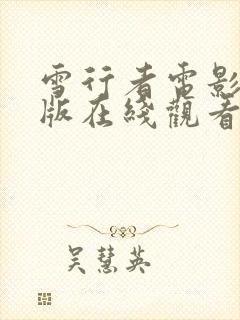 雪行者電影
版在綫觀看
吴慧英